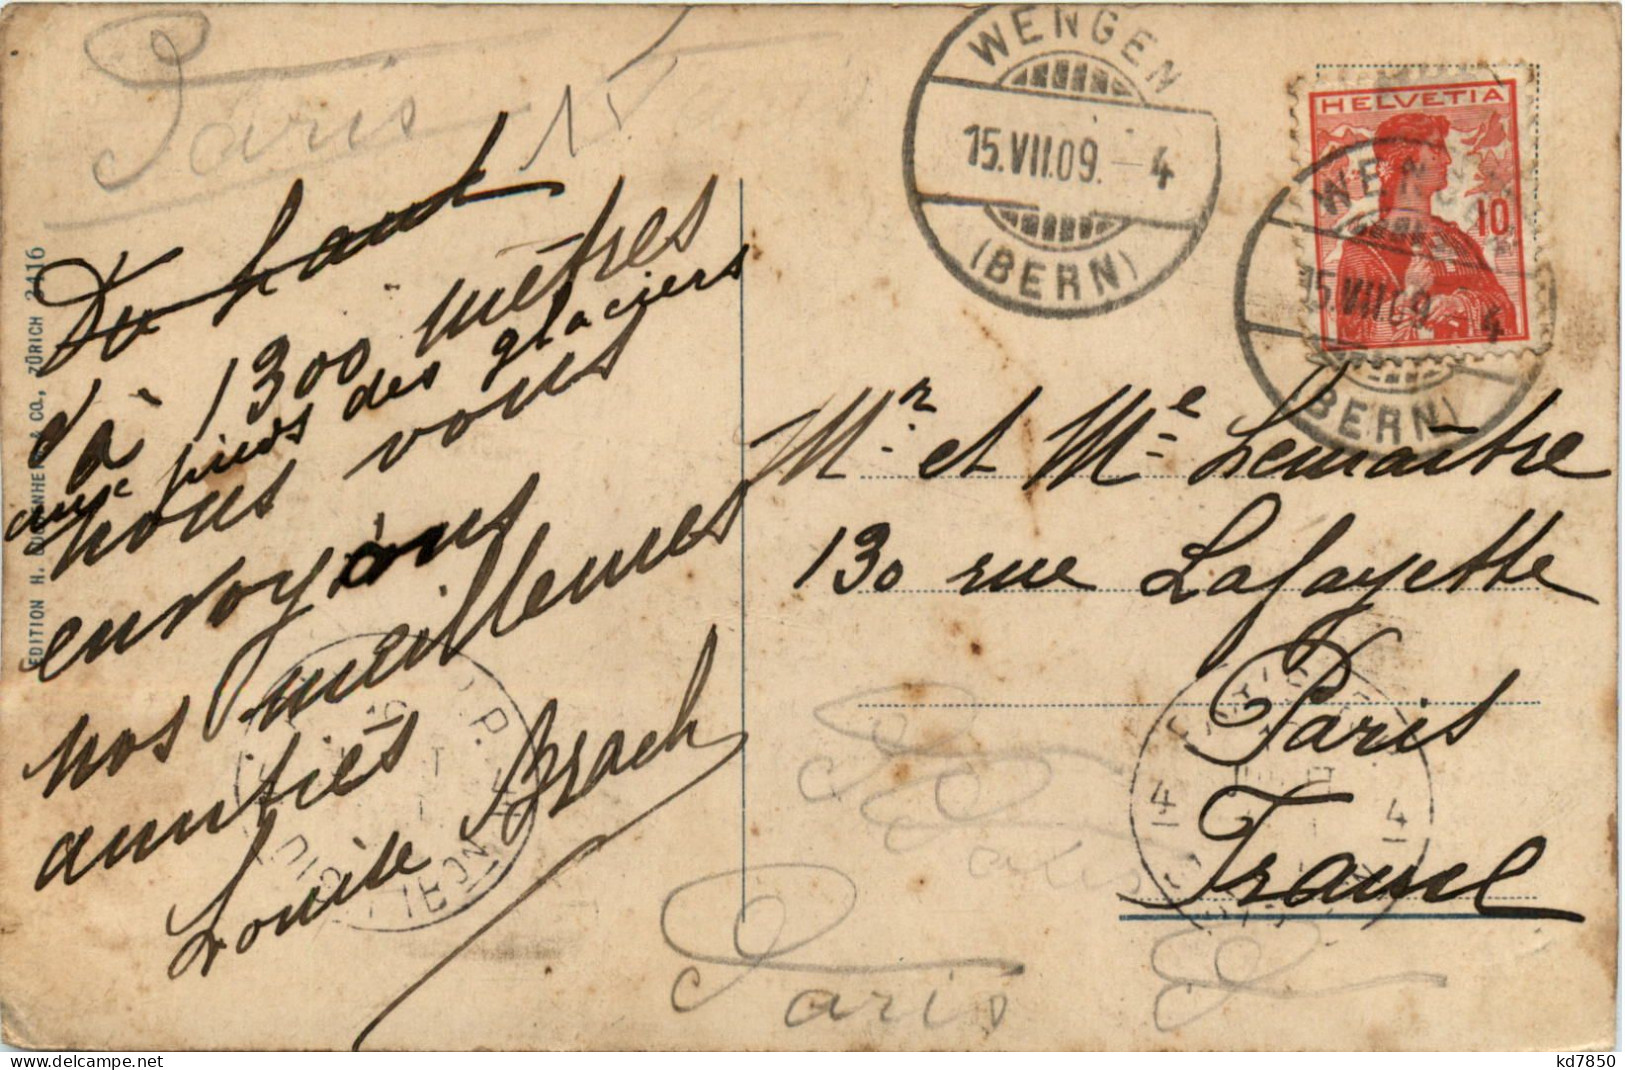 Paris
15
WENGEN
15.VII.09.–4
(BERN)
HELVETIA
10
WENGEN
15.VII.09.–4
(BERN)
Du haut
d'à 1300 mètres
aux pieds des glaciers
nous vous
envoyons
nos meilleures
amitiés
Louise Brach
Mr. et Me Lemaître
130 rue Lafayette
Paris
France
4 4
DISTRIBUTION
Paris
Paris
EDITION H. GUGGENHEIM & CO., ZÜRICH 2416
kd7850